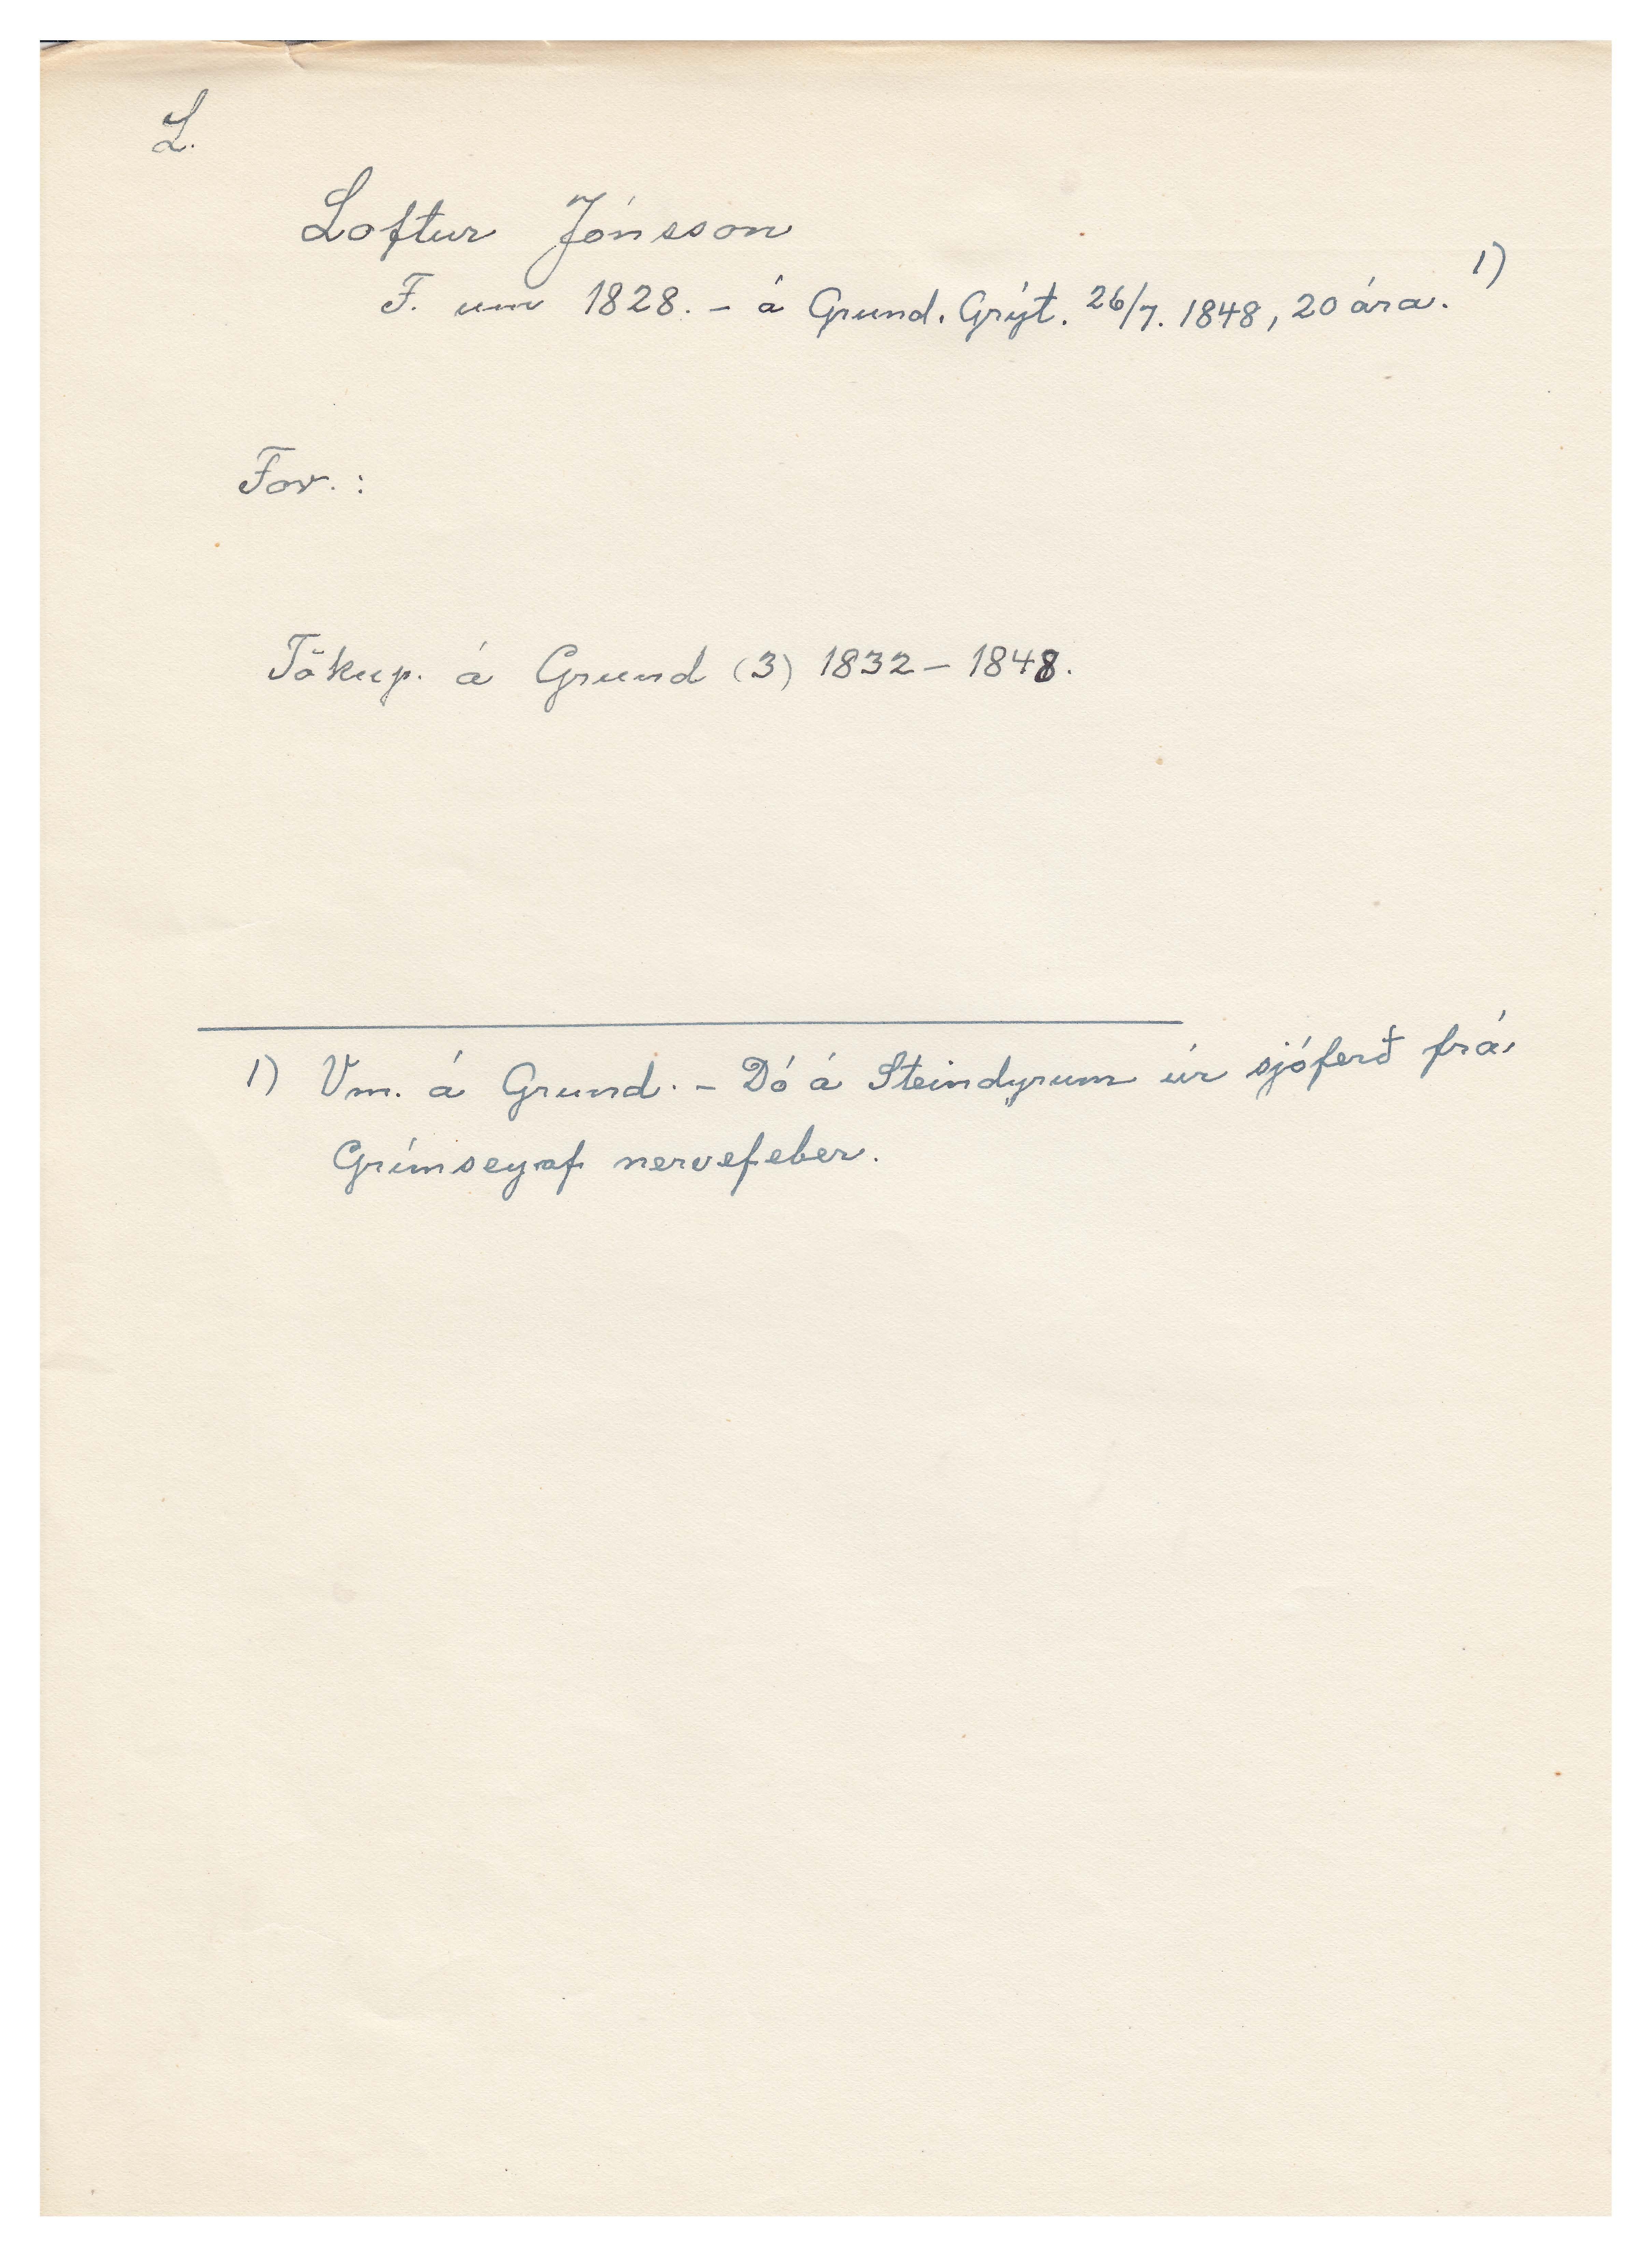 L.
Loftur Jónsson
F. um 1828. - á Grund. Grýt. 26/7. 1848, 20 ára. 1)
For. :
Tökup. á Grund (3) 1832 - 1848.
1) Vm. á Grund. - Dó á Steindyrum úr sjóferð frá
Grímsey af nervefeber.